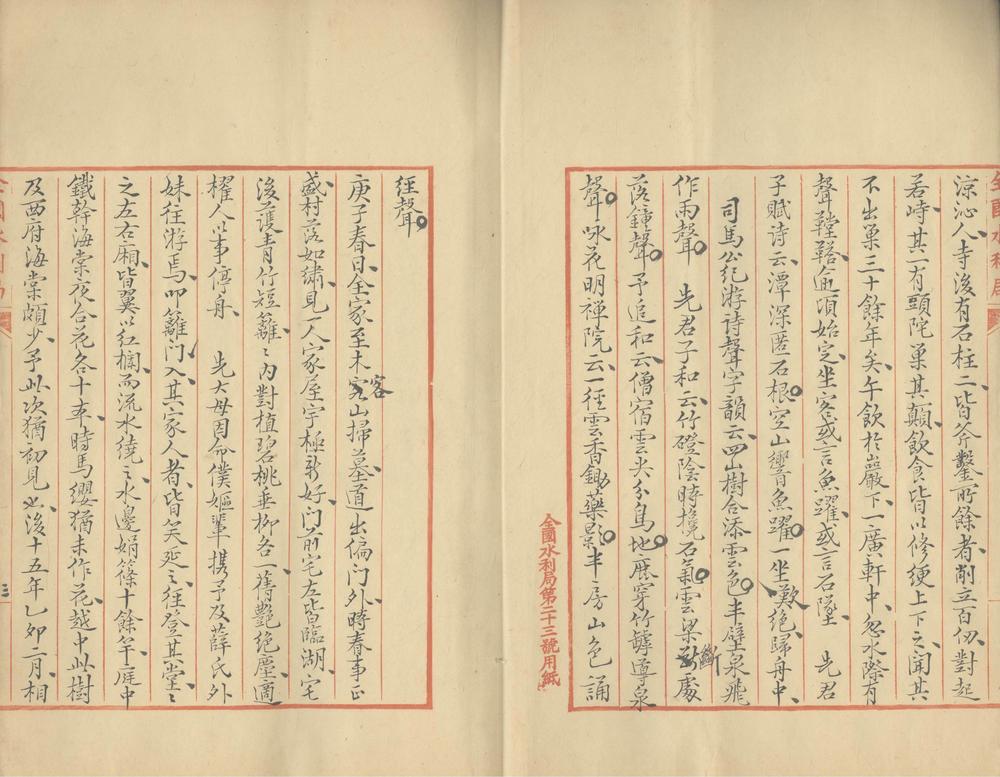 涼沁人寺後有石柱二皆斧鑿所餘者削立百仞對起
若峙其一有頭陀巢其顛飲食皆以修綆上下之聞其
不出巢三十餘年矣午飲於巖下一廣軒中忽水際有
聲鞺鞳食頃始定坐客或言魚躍或言石墜　先君
子賦诗云潭深匿石根空山響魚躍一坐歎絕歸舟中
司馬公紀游诗聲字韻云四山樹合添雲色半壁泉飛
作雨聲　先君子和云竹磴陰時攙石氣雲梁斷處
落鐘聲予追和云僧宿雲尖分鳥地厎穿竹罅導泉
聲咏花明禅院云一徑雲香鋤藥影半房山色誦
全國水利局第二十三號用紙
经聲
庚子春日全家至木客山掃墓道出偏门外時春事正
盛村落如繡見一人家屋宇極新好门前宅左皆臨湖宅
後護青竹短籬籬内對植碧桃垂柳各一舊艷絕塵適
櫂人以事停舟　先大母因命僕嫗輩携予及薛氏外
妹往游焉叩籬门入其家人者皆笑延之往登其堂堂
之左右廂皆翼以红欄而流水绕之水邊娟篠十餘竿庭中
鐵幹海棠夜合花各十本時馬纓猶未作花越中此樹
及西府海棠頗少予此次猶初見也後十五年乙卯二月相
三